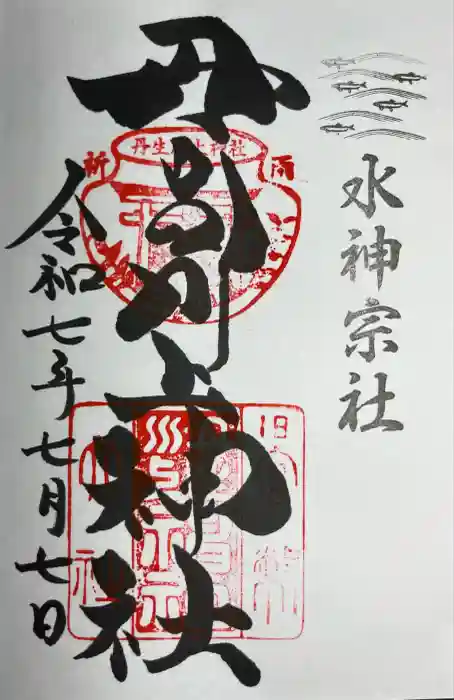 水神宗社
丹生川上神社
丹生川上神社
祈雨
令和七年七月七日